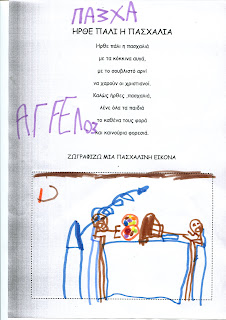 ΠΑΣΧΑ
ΗΡΘΕ ΠΑΛΙ Η ΠΑΣΧΑΛΙΑ
Ήρθε πάλι η πασχαλιά
με τα κόκκινα αυγά,
με το σουβλιστό αρνί
να χαρούν οι χριστιανοί.
Καλώς ήρθες ,πασχαλιά,
λένε τους όλα τα παιδιά
το καθένα τους φορά
και καινούρια φορεσιά.
ΑΓΓΕΛΟΣ
ΖΩΓΡΑΦΙΖΩ ΜΙΑ ΠΑΣΧΑΛΙΝΗ ΕΙΚΟΝΑ